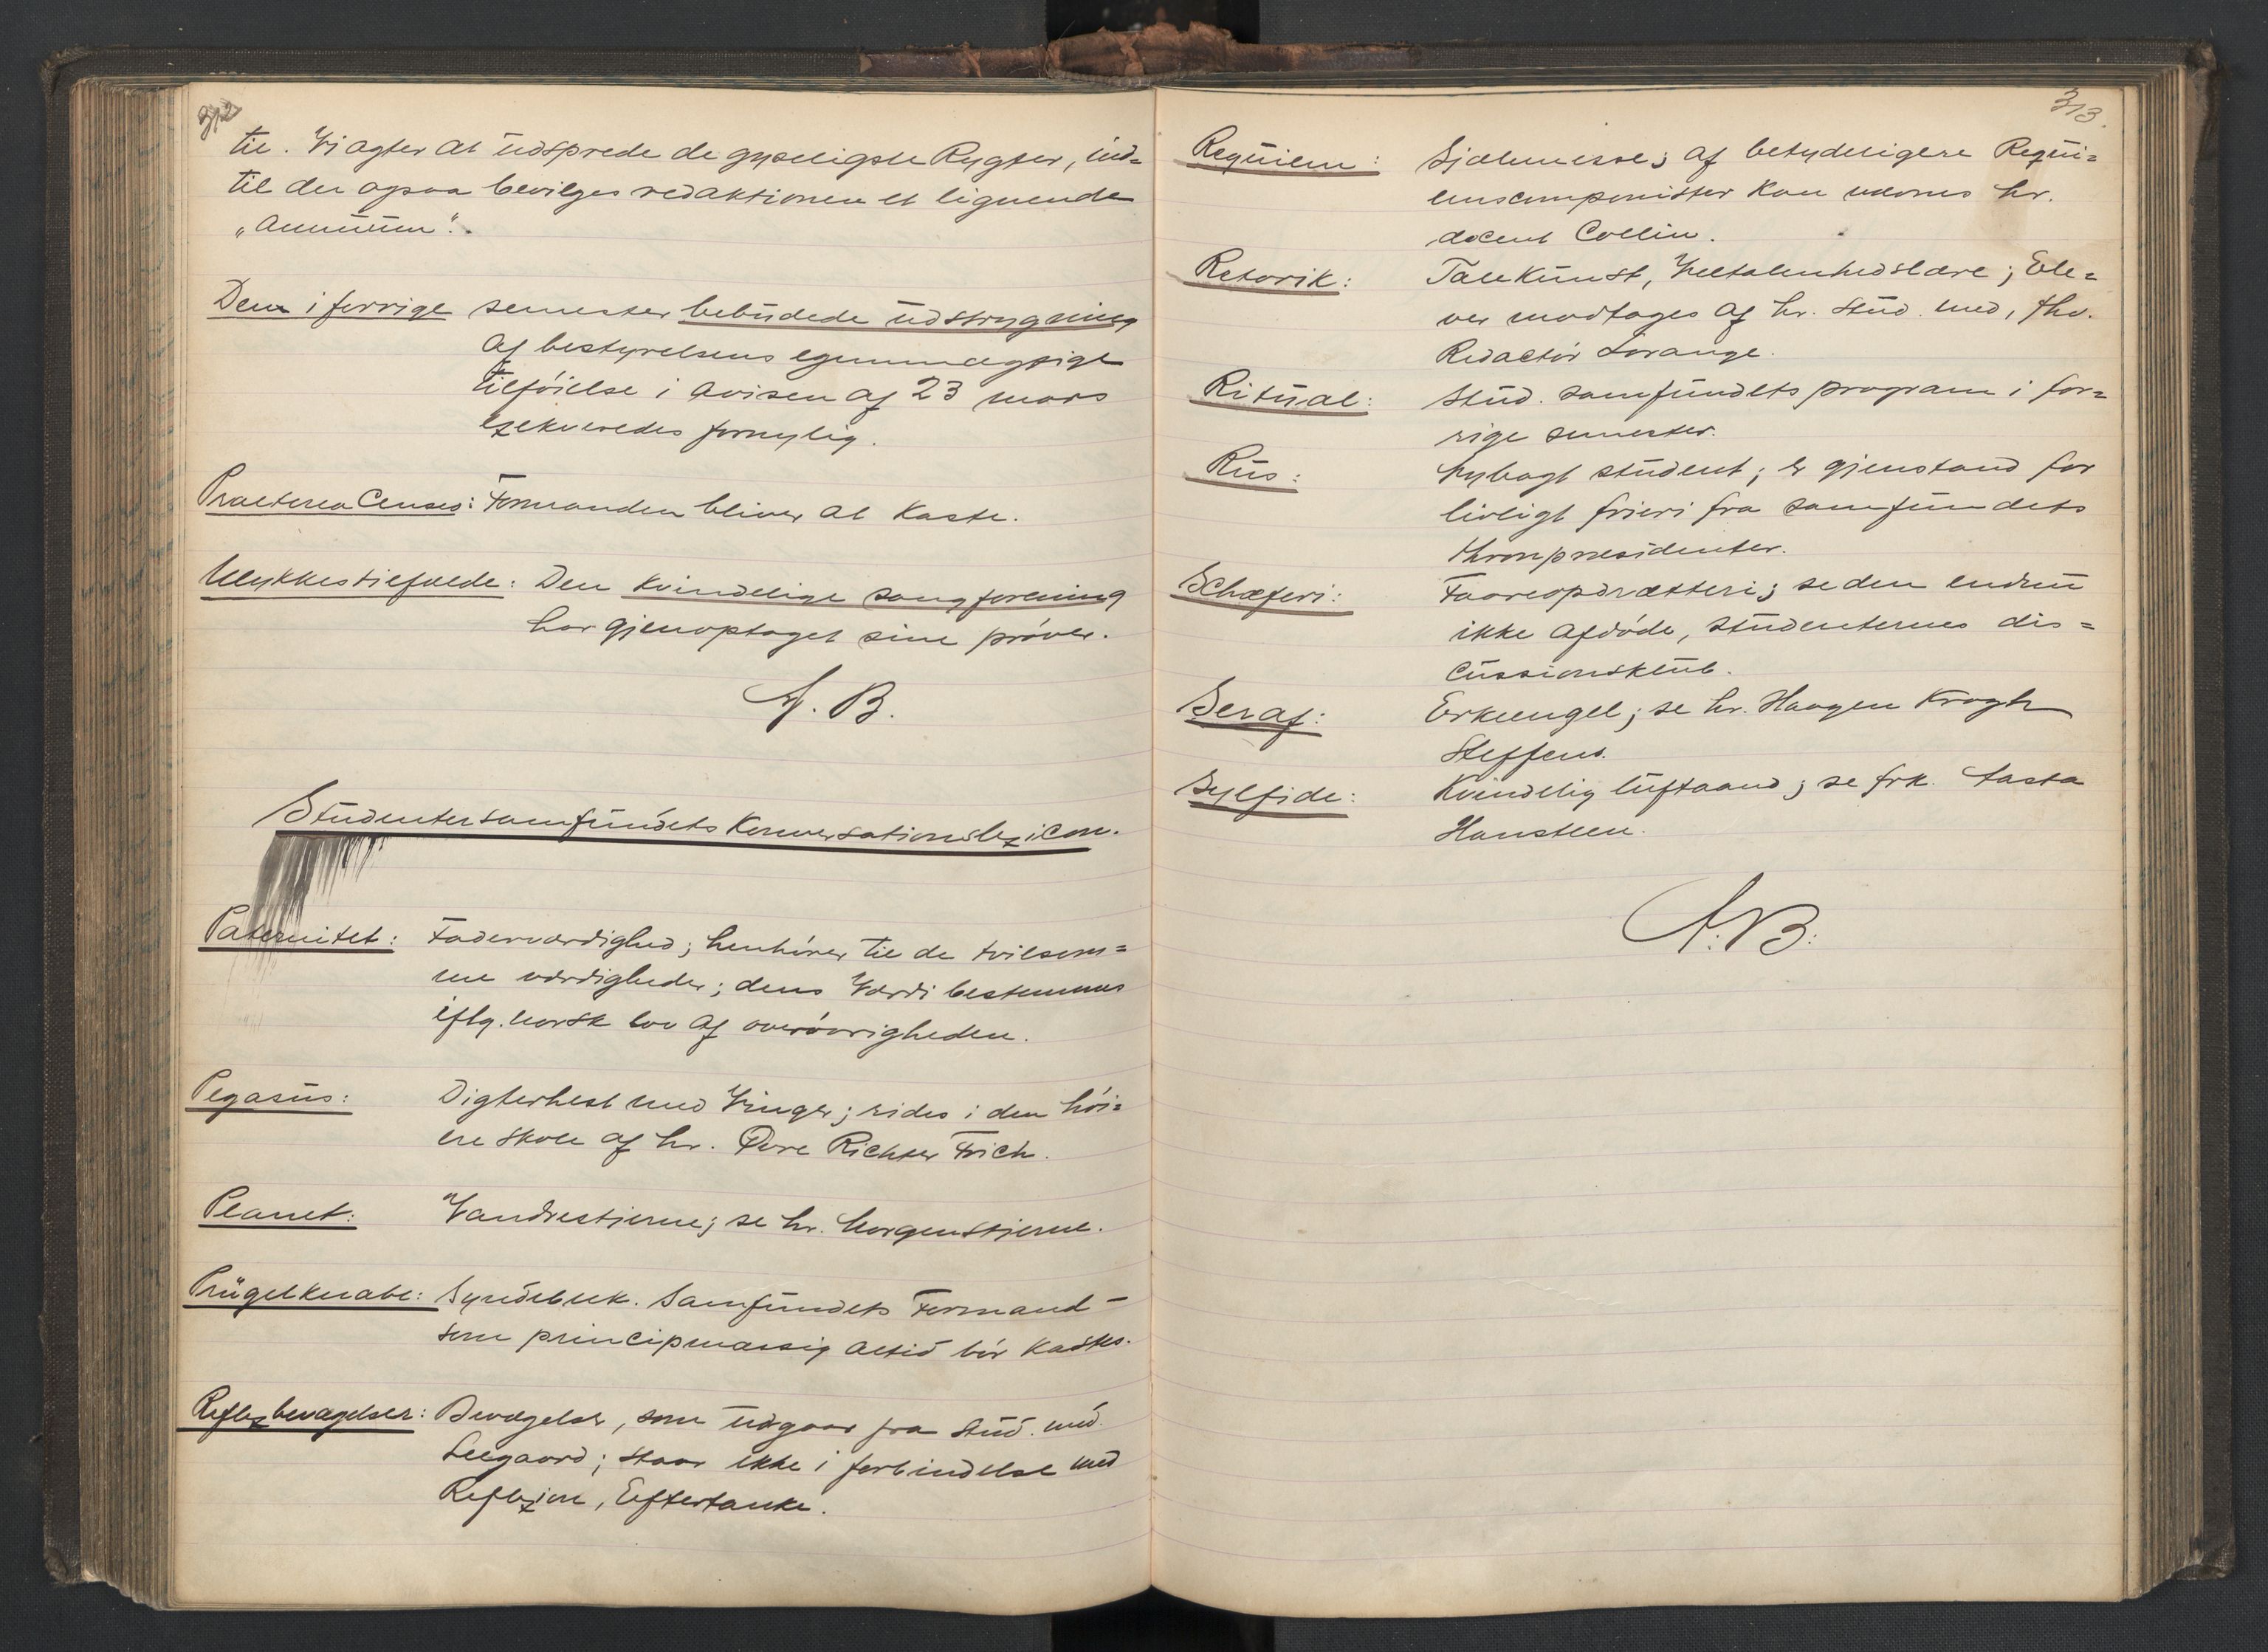 312
til. Vi agter at udsprede de gyseligste Rygter, ind=
til der ogsaa bevilges redaktionen et lignende
"annuum".
Den i forrige semester bebudede udstrygning
af bestyrelsens egenmægtige
tilføielse i avisen af 23 mars
exekveredes fornylig.
Praeterea Censeo: Formanden bliver at kaste.
Ulykkestilfælde: Den kvindelige sangforening
har gjenoptaget sine prøver.
A. B.
Studentersamfundets Konversationslexicon.
Paternitet: Faderværdighed; henhører til de tvilsom=
me værdigheder; dens Værdi bestemmes
iflg. norsk lov af overøvrigheden.
Pegasus: Digterhest med Vinger; rides i den høi=
ere skole af hr. Øvre Richter Frich.
Planet: Vandrestjerne; se hr. Morgenstjerne.
Prügelknabe: Syndebuk. Samfundets Formand -
som principmæssig altid bør kastes.
Reflexbevægelser: Bevægelser, som udgaar fra stud. med.
Seegaard; staar ikke i forbindelse med
Reflexion, Eftertanke.
313.
Requiem: Sjælemesse; af betydeligere Requi=
emscomponister kan nævnes hr.
docent Collin.
Retorik: Talekunst, Veltalenhedslære; Ele=
ver modtages af hr. stud. med, fhv.
Redactør Lorange.
Ritual: Stud. samfundets program i for=
rige semester.
Rus: Nybagt student; er gjenstand for
livligt frieri fra samfundets
thronpræsidenter.
Schæferi: Faareopdrætteri; se den endnu
ikke afdøde, studenternes dis=
cussionsklub.
Seraf: Erkeengel; se hr. Haagen Krogh
Steffens.
Sylfide: Kvindelig luftaand; se frk. Aasta
Hansteen.
A. B.